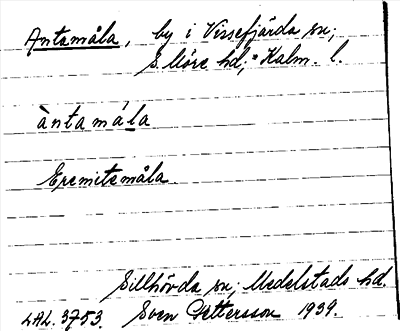 Antamåla, by i Vissefjärda sn;
S. Möre hd; Kalm. l.
àntamá̱la
Eremitemåla
Sillhövda sn; Medelstads hd.
LAL. 3753. Sven Pettersson 1939.